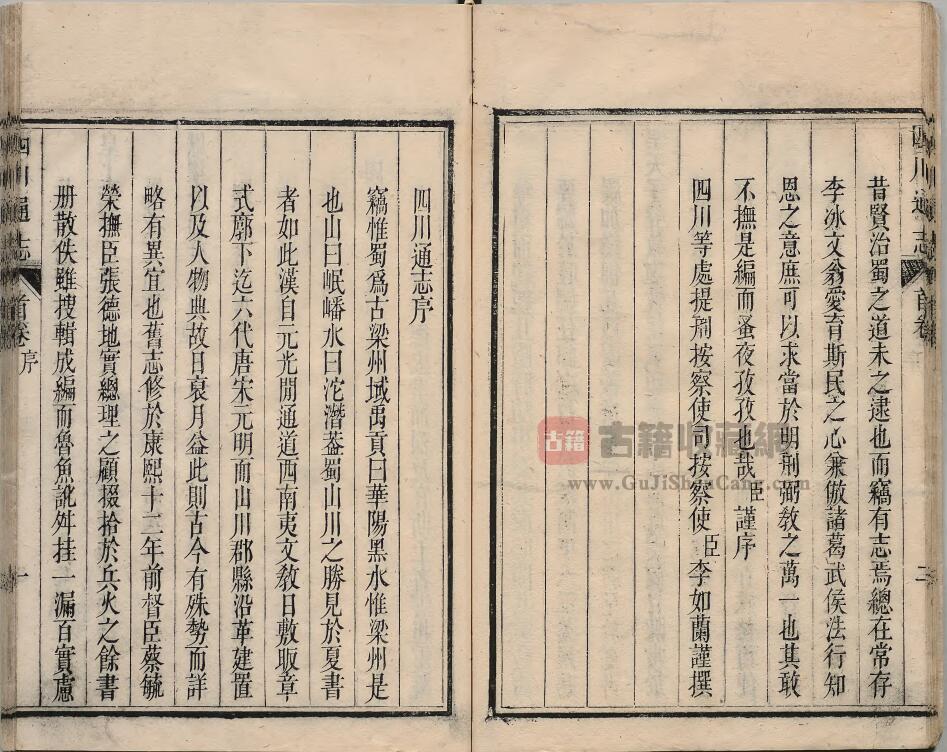 四川通志
首卷
二
昔賢治蜀之道未之逮也而竊有志焉總在常存
李冰文翁愛育斯民之心兼倣諸葛武侯法行知
恩之意庶可以求當於明刑弼敎之萬一也其敢
不撫是編而蚤夜孜孜也哉臣謹序
四川等處提刑按察使司按察使臣李如蘭謹撰
古籍
古籍收藏網
www.GuJiShouCang.com
四川通志序
竊惟蜀爲古梁州域禹貢曰華陽黑水惟梁州是
也山曰岷嶓水曰沱潛葢蜀山川之勝見於夏書
者如此漢自元光閒通道西南夷文敎日敷昄章
式廓下迄六代唐宋元明而山川郡縣沿革建置
以及人物典故日裒月益此則古今有殊勢而詳
略有異宜也舊志修於康熙十二年前督臣蔡毓
榮撫臣張德地實總理之顧掇拾於兵火之餘書
册散佚雖搜輯成編而魯魚訛舛挂一漏百實慮
四川通志
首卷
序
一